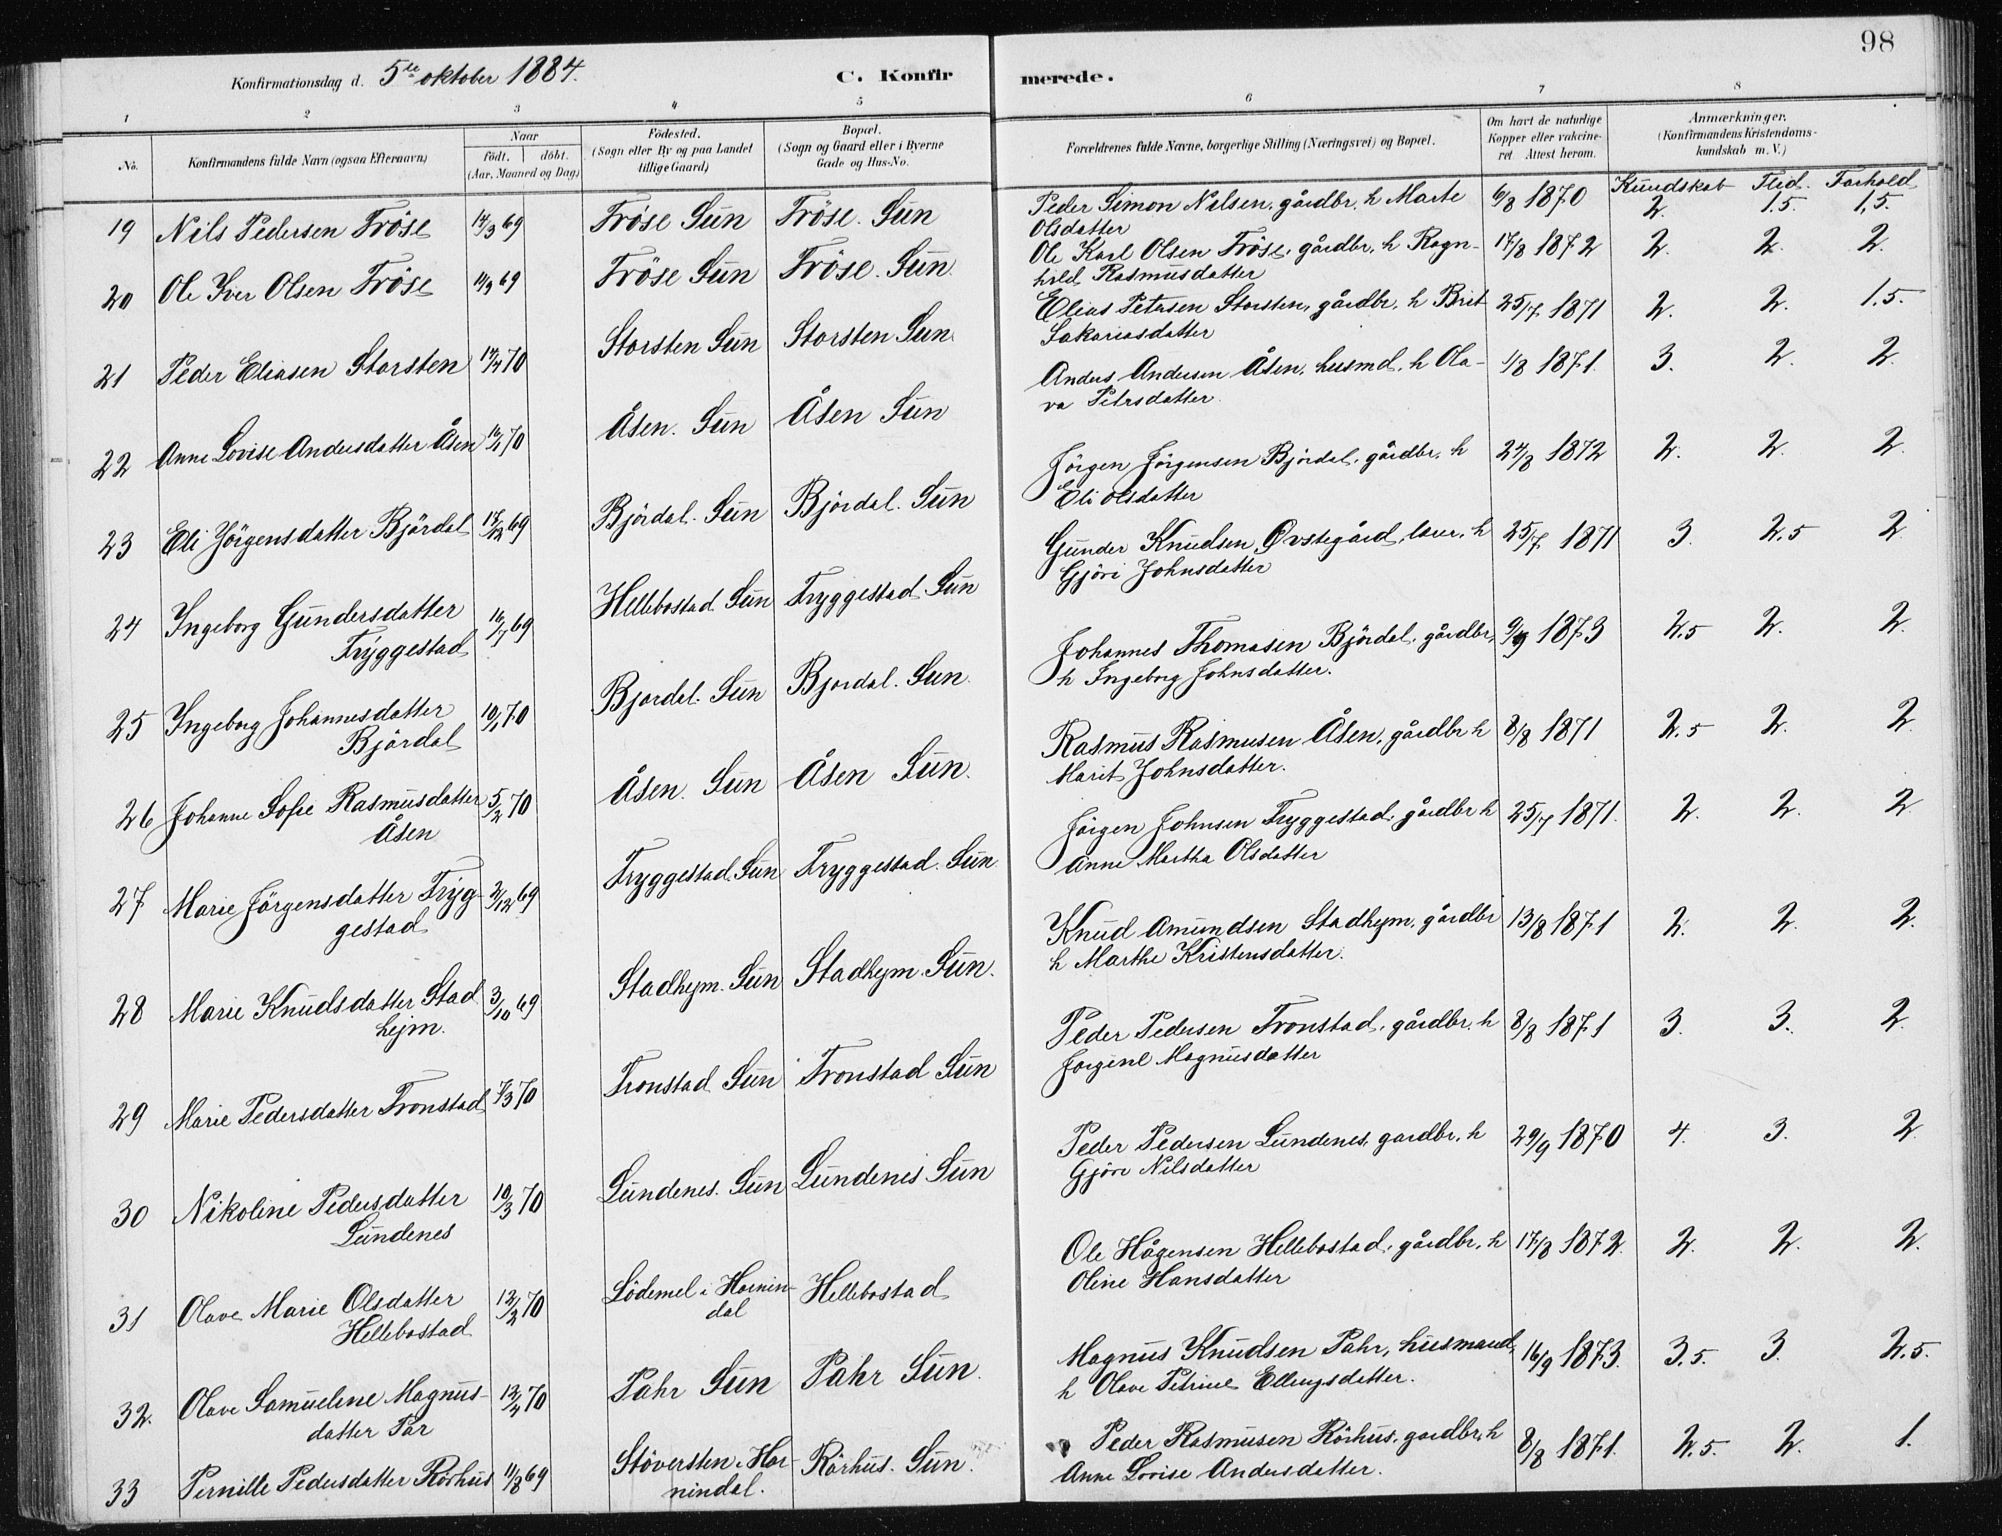 98
Konfirmationsdag d. 5te oktober 1884.
C. Konfirmerede.
1 2 3 4 5 6 7 8
No.
Konfirmandens fulde Navn (ogsaa Efternavn)
Naar
födt. | döbt.
(Aar, Maaned og Dag)
Födested.
(Sogn eller By og paa Landet
tillige Gaard)
Bopæl.
(Sogn og Gaard eller i Byerne
Gade og Hus-No.
Forældrenes fulde Navne, borgerlige Stilling (Næringsvei) og Bopæl.
Om havt de naturlige
Kopper eller vakcine-
ret Attest herom.
Anmærkninger.
(Konfirmandens Kristendoms-
kundskab m. V.)
Kundskab Flid. Forhold
19 Nils Pedersen Fröse 14/3 69 Fröse Sun Fröse. Sun Peder Simon Nilsen, gårdbr, h Marte 6/8 1870 2. 1.5. 1,5.
Olsdatter
20 Ole Iver Olsen Fröse 14/9 69 Fröse Sun Fröse. Sun. Ole Karl Olsen Fröse, gårdbr, h Ragn- 17/8 1872 2. 2. 2.
hild Rasmusdatter
21 Peder Eliasen Storsten 14/4 70 Storsten Sun Storsten Sun. Elias Petersen Storsten, gårdbr, h Brit 25/7 1871 2. 2. 1.5.
Sakariasdatter
22 Anne Lovise Andersdatter Åsen 16/4 70 Åsen. Sun Åsen Sun Anders Andersen Åsen, husmd, h Ola- 1/8 1871. 3. 2. 2.
va Petersdatter.
23 Eli Jörgensdatter Björdal 17/12 69 Björdal. Sun Björdal. Sun Jörgen Jörgensen Björdal, gårdbr, h 24/8 1872 2. 2. 2
Eli Olsdatter
24 Ingeborg Gundersdatter 16/7 69 Hellebostad Sun Tryggestad Sun Gunder Knudsen Øvstegård, laur, h 25/7 1871 3. 2.5 2
Tryggestad
Gjöri Johnsdatter
25 Ingeborg Johannesdatter 10/1 70 Bjordal. Sun Bjordal. Sun. Johannes Thomasen Björdal, gårdbr, 9/9 1873 2.5 2. 2.
Björdal
h Ingeborg Johnsdatter.
26 Johanne Sofie Rasmusdatter 5/2 70 Åsen. Sun Åsen Sun. Rasmus Rasmusen Åsen, gårdbr h 8/8 1871 2.5 2. 2
Åsen
Marit Johnsdatter.
27 Marie Jörgensdatter Tryg- 2/12 69 Tryggestad. Sun Tryggestad. Sun Jörgen Johnsen Tryggestad, gårdbr h 25/7 1871. 2. 2. 2
gestad
Anne Martha Olsdatter
28 Marie Knudsdatter Stad 3/10 69 Stadhejm. Sun Stadhejm. Sun. Knud Amundsen Stadhejm, gårdbr 13/8 1871 2. 2. 2.
hejm.
h Marthe Kristensdatter.
29 Marie Pedersdatter Tronstad 7/3 70 Tronstad Sun Tronstad Sun Peder Pedersen Tronstad, gårdbr, h 8/8 1871 3. 3. 2.
Jorgine Magnusdatter
30 Nikoline Pedersdatter 10/3 70 Lundenes. Sun Lundenes Sun Peder Pedersen Lundenes, gardbr, h 29/9 1870 4. 3. 2
Lundenes
Gjöre Nilsdatter
31 Olave Marie Olsdatter 12/2 70 Lödemel i Hornin- Hellebostad Ole Hågensen Hellebostad, gårdbr, h 17/8 1872. 2. 2. 2.
Hellebostad
dal
Oline Hansdatter
32. Olave Samueline Magnus- 12/4 70 Pahr Sun Pahr Sun. Magnus Knudsen Pahr, husmand, 16/9 1873. 3.5. 3. 2.5.
datter Par
h Olave Petrine Ellingsdatter.
33 Pernille Pedersdatter Rörhus 11/8 69 Stöversten i Hor- Rörhus. Sun. Peder Rasmusen Rörhus, gardbr, h 8/8 1871. 2.5. 2. 1.
nindal.
Anne Lovise Andersdatter.